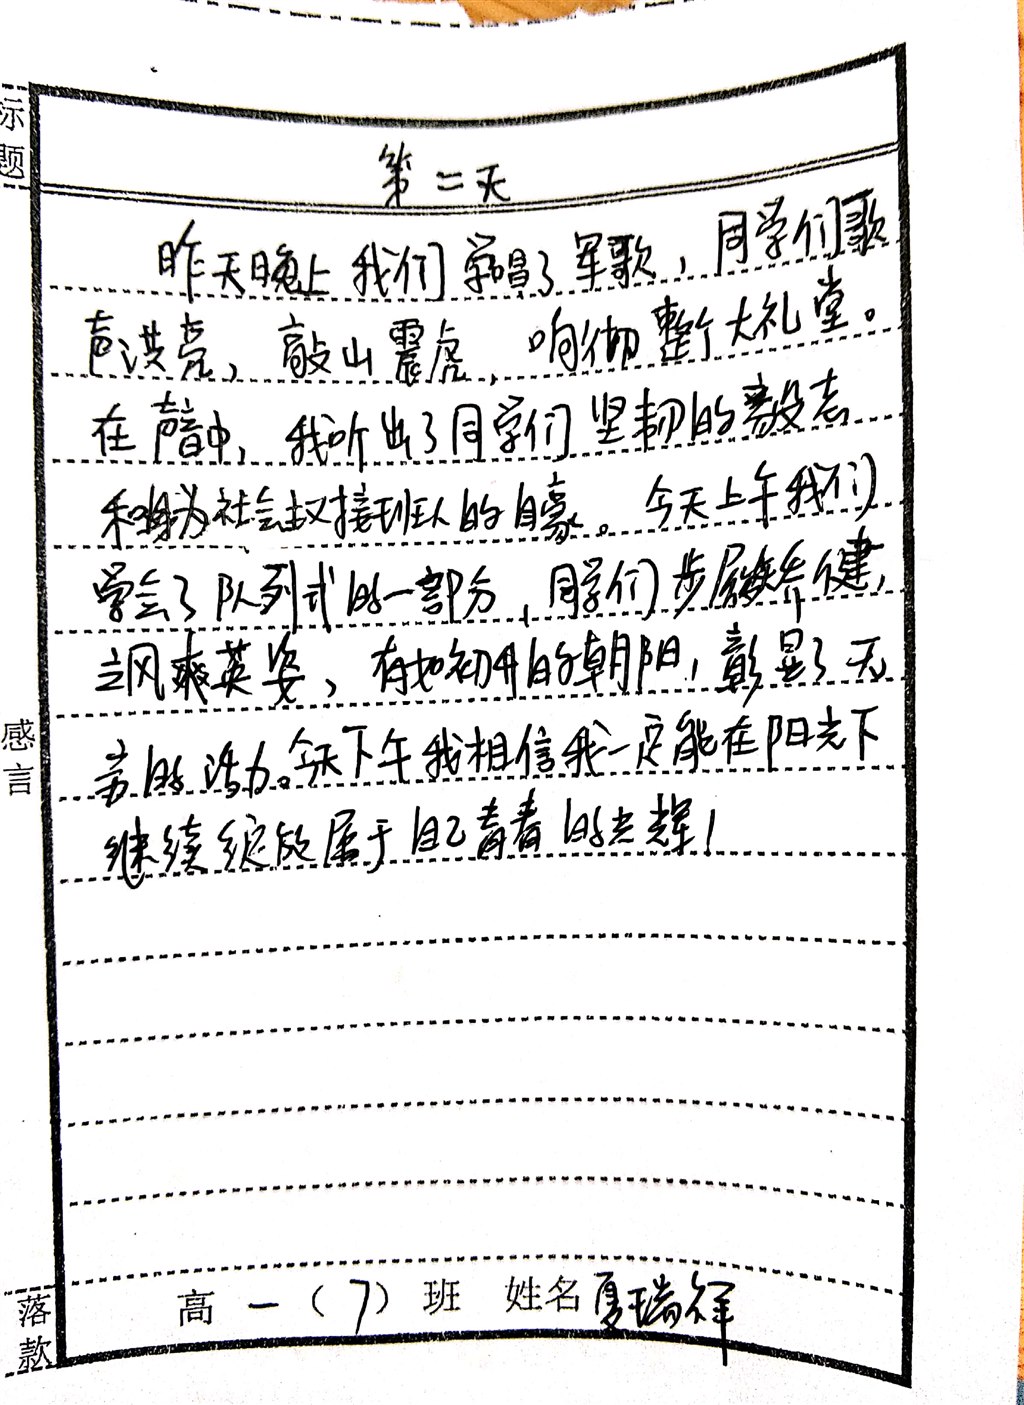 标题
第二天
昨天晚上我们学唱了军歌，同学们歌
声洪亮，敲山震虎，响彻整个大礼堂。
在声音中，我听出了同学们坚韧的毅志
和身为社会主义接班人的自豪。今天上午我们
学会了队列式的一部分，同学们步履矫健，
立风爽英姿，有如初升的朝阳，彰显了无
穷的活力。今天下午我相信我一定能在阳光下
继续绽放属于自己青春的光辉！
感言
落款
高一（7）班 姓名夏瑞祥